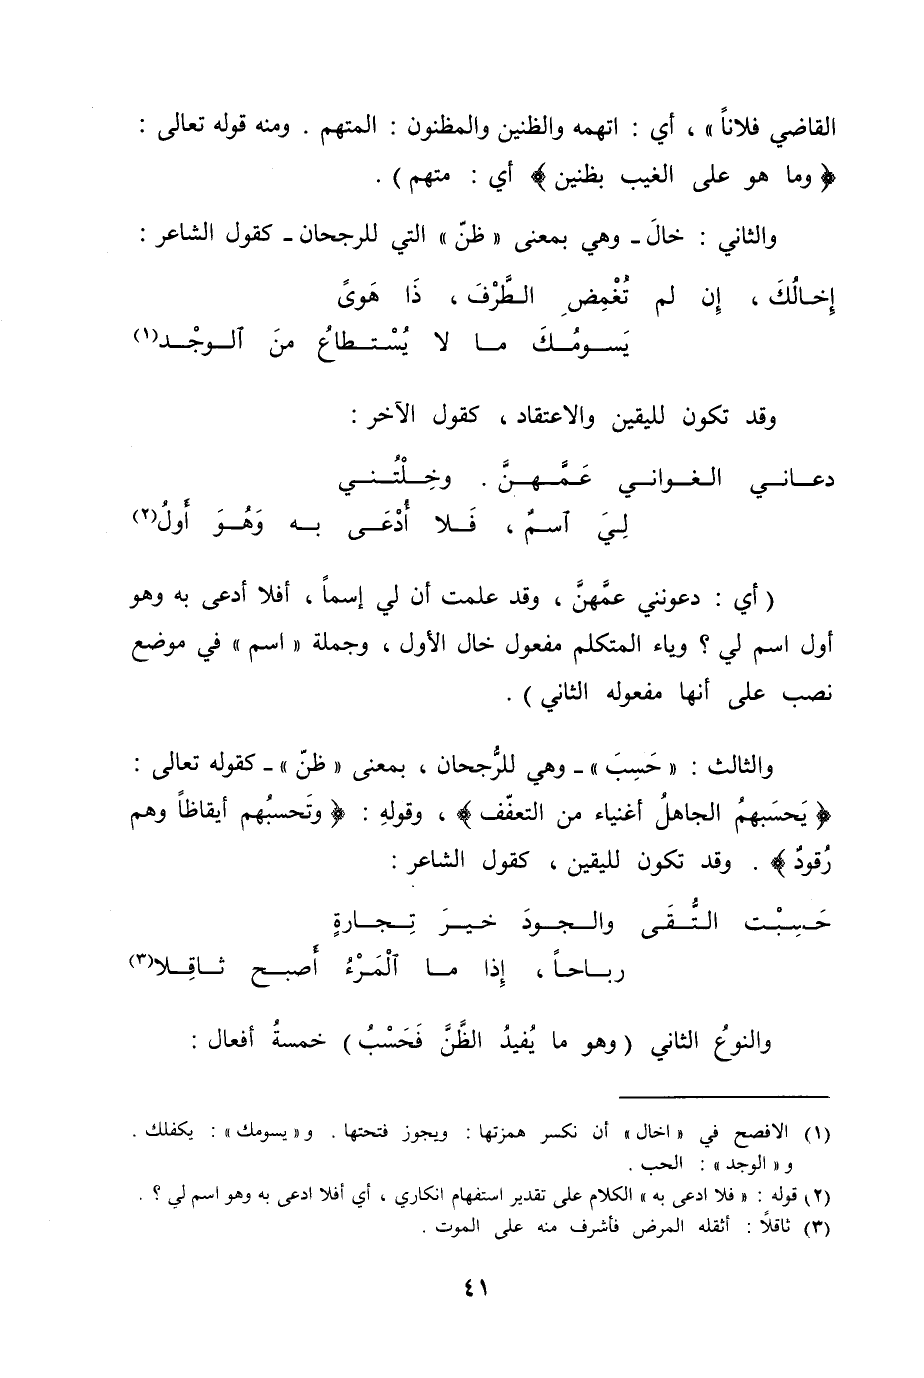 القاضي فلاناً » ، أي : اتهمه والظنين والمظنون : المتهم . ومنه قوله تعالى :
﴿ وما هو على الغيب بظنين ﴾ أي : متهم ) .
والثاني : خالَ ـ وهي بمعنى « ظنّ » التي للرجحان ـ كقول الشاعر :
إخـالُكَ ، إن لم تُغْمِضِ الـطَّرْفَ ، ذَا هَوىً
يَـسـومُـكَ مـا لا يُسْـتـطاعُ منَ ٱلـوجْـد(١)
وقد تكون لليقين والاعتقاد ، كقول الآخر :
دعـانـي الـغـوانـي عَـمَّـهـنَّ . وخِـلْتُـنـي
لِيَ ٱسـمٌ ، فَـلا أُدْعَـى بـه وَهُـوَ أَولُ(٢)
( أي : دعونني عمَّهنَّ ، وقد علمت أن لي إسماً ، أفلا أدعى به وهو
أول اسم لي ؟ وياء المتكلم مفعول خال الأول ، وجملة « اسم » في موضع
نصب على أنها مفعوله الثاني ) .
والثالث : « حَسِبَ » ـ وهي للرُّجحان ، بمعنى « ظنّ » ـ كقوله تعالى :
﴿ يَحسَبهمُ الجاهلُ أغنياء من التعفّف ﴾ ، وقولهِ : ﴿ وتَحسبُهم أيقاظاً وهم
رُقودٌ ﴾ . وقد تكون لليقين ، كقول الشاعر :
حَـسِـبْـت الـتُّـقَـى والـجـودَ خـيـرَ تِـجـارةٍ
ربـاحـاً ، إذا مـا ٱلْمَـرْءُ أَصبـح ثـاقِـلا(٣)
والنوعُ الثاني ( وهو ما يُفيدُ الظَّنَّ فَحَسْبُ ) خمسةُ أفعال :
(١) الافصح في « اخال » أن نكسر همزتها : ويجوز فتحتها . و « يسومك » : يكفلك .
و « الوجد » : الحب .
(٢) قوله : « فلا ادعى به » الكلام على تقدير استفهام انكاري ، أي أفلا ادعى به وهو اسم لي ؟ .
(٣) ثاقلاً : أثقله المرض فأشرف منه على الموت .
٤١